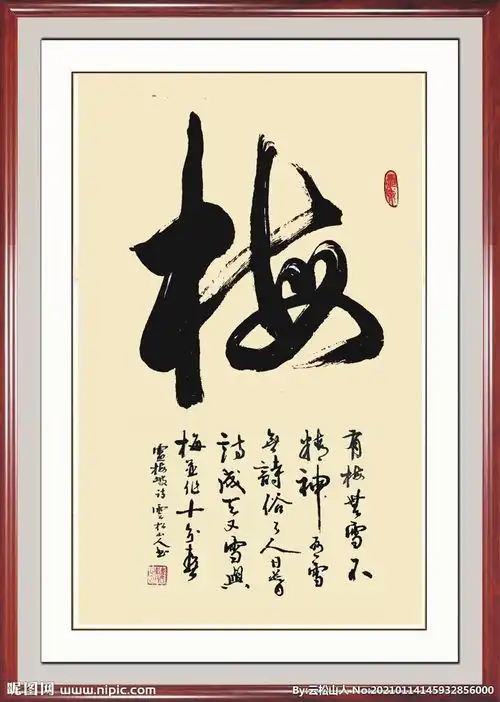 梅
有梅無雪不
精神有雪
無詩俗了人日暮
詩成天又雪與
梅並作十分春
盧梅坡詩 雲松山人書
昵图网 www.nipic.com
By:云松山人 No:20210114145932856000